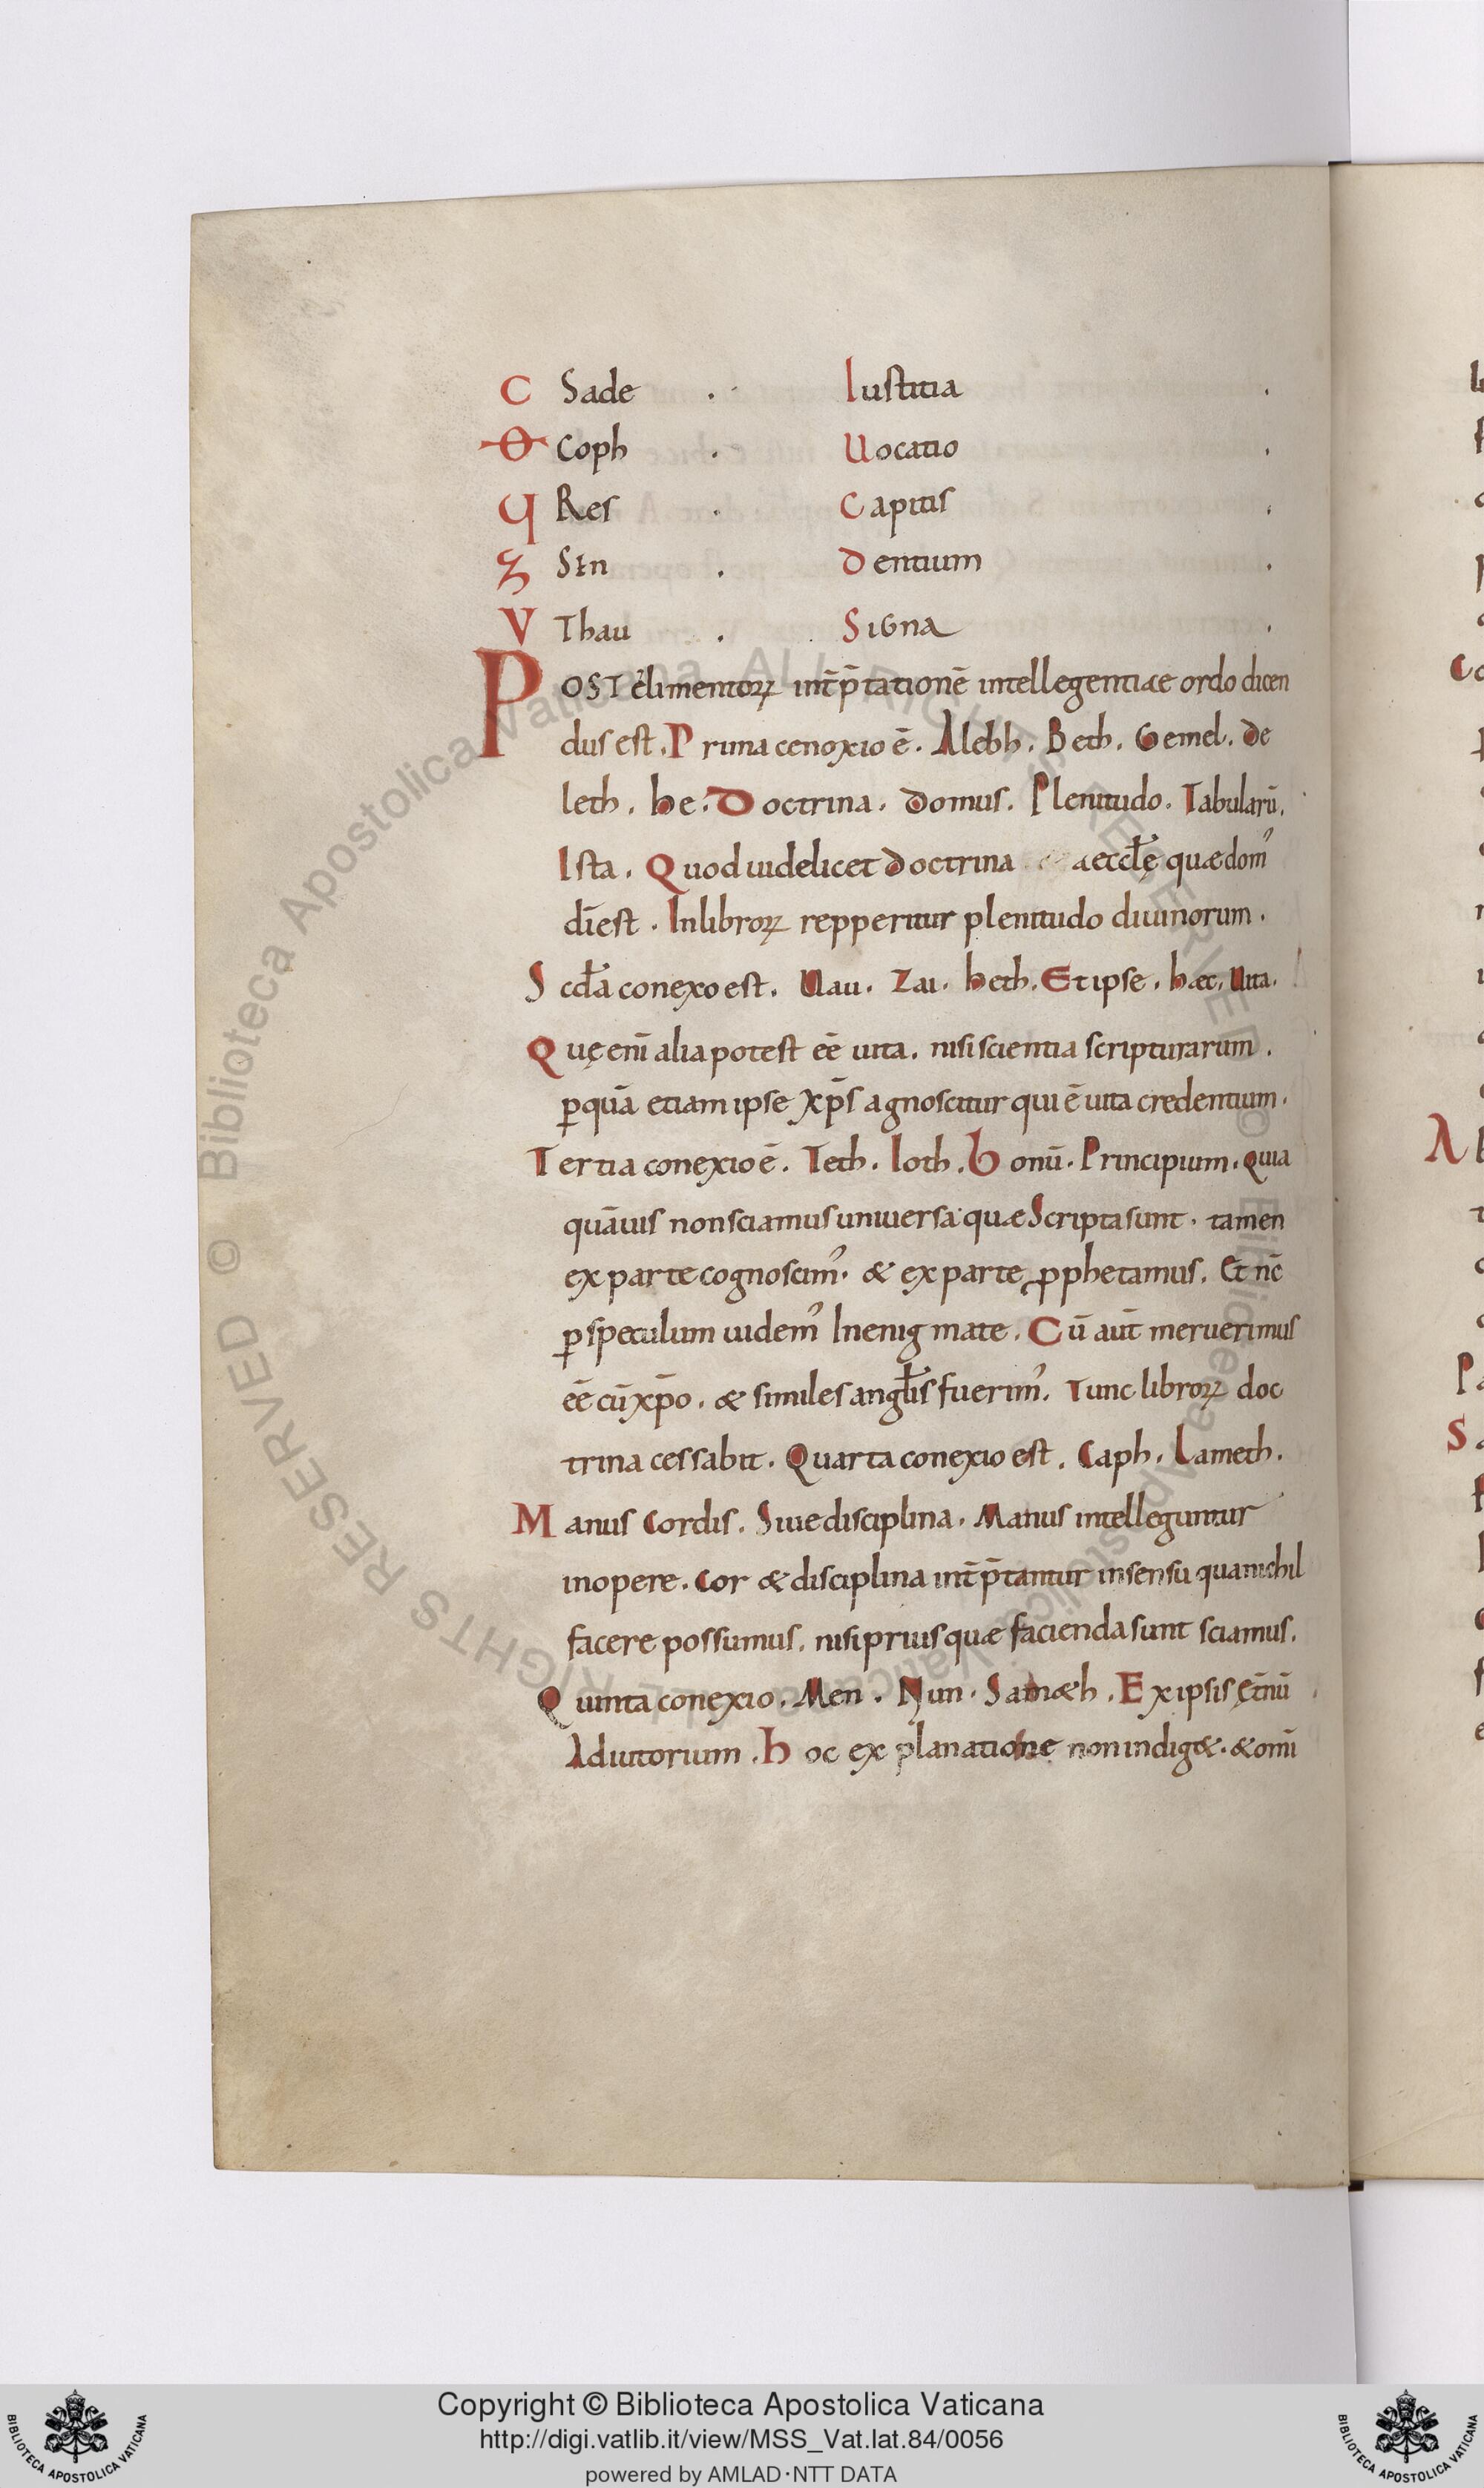 C Sade . Iustitia .
Θ Coph . Uocatio .
Res . Capitis .
Sin . Dentium .
V Thau . Signa .
POST elimentoꝝ int̄p̄tationē intellegentiae ordo dicen
dus est. Prima cenoxio ē. Alebh. Beth. Gemel. De
leth. he. Doctrina. Domus. Plenitudo. Tabularū.
Ista. Quod uidelicet Doctrina aeccl̄ę quae dom᾽
dīest. In libroꝝ repperitur plenitudo diuinorum.
Scd̄a conexo est. Uau. Zai. heth. Et ipse. haec. Uita.
Quę enī alia potest eē uita. nisi scientia scripturarum.
ꝑquā etiam ipse xp̄s agnoscitur qui ē uita credentium.
Tertia conexio ē. Teth. Ioth. bonū. Principium. Quia
quāuis non sciamus uniuersa quae Scripta sunt. tamen
ex parte cognoscim᾽. & ex parte ꝓphetamus. Et nc̄
ꝑ speculum uidem᾽ In enigmate. Cū aut̄ meruerimus
eē cū xp̄o. & similes angl̄is fuerim᾽. Tunc libroꝝ doc
trina cessabit. Quarta conexio est. Caph. Lameth.
Manus Cordis. Siue disciplina. Manus intelleguntur
in opere. Cor & disciplina int̄p̄tantur in sensu quanichil
facere possumus. nisi prius quae facienda sunt sciamus.
Quinta conexio. Men. Nun. Samæh. Ex ipsis ęt̄nū
Adiutorium. hoc explanatione non indig&. & omī
Copyright © Biblioteca Apostolica Vaticana
http://digi.vatlib.it/view/MSS_Vat.lat.84/0056
powered by AMLAD·NTT DATA
BIBLIOTECA APOSTOLICA VATICANA
BIBLIOTECA APOSTOLICA VATICANA